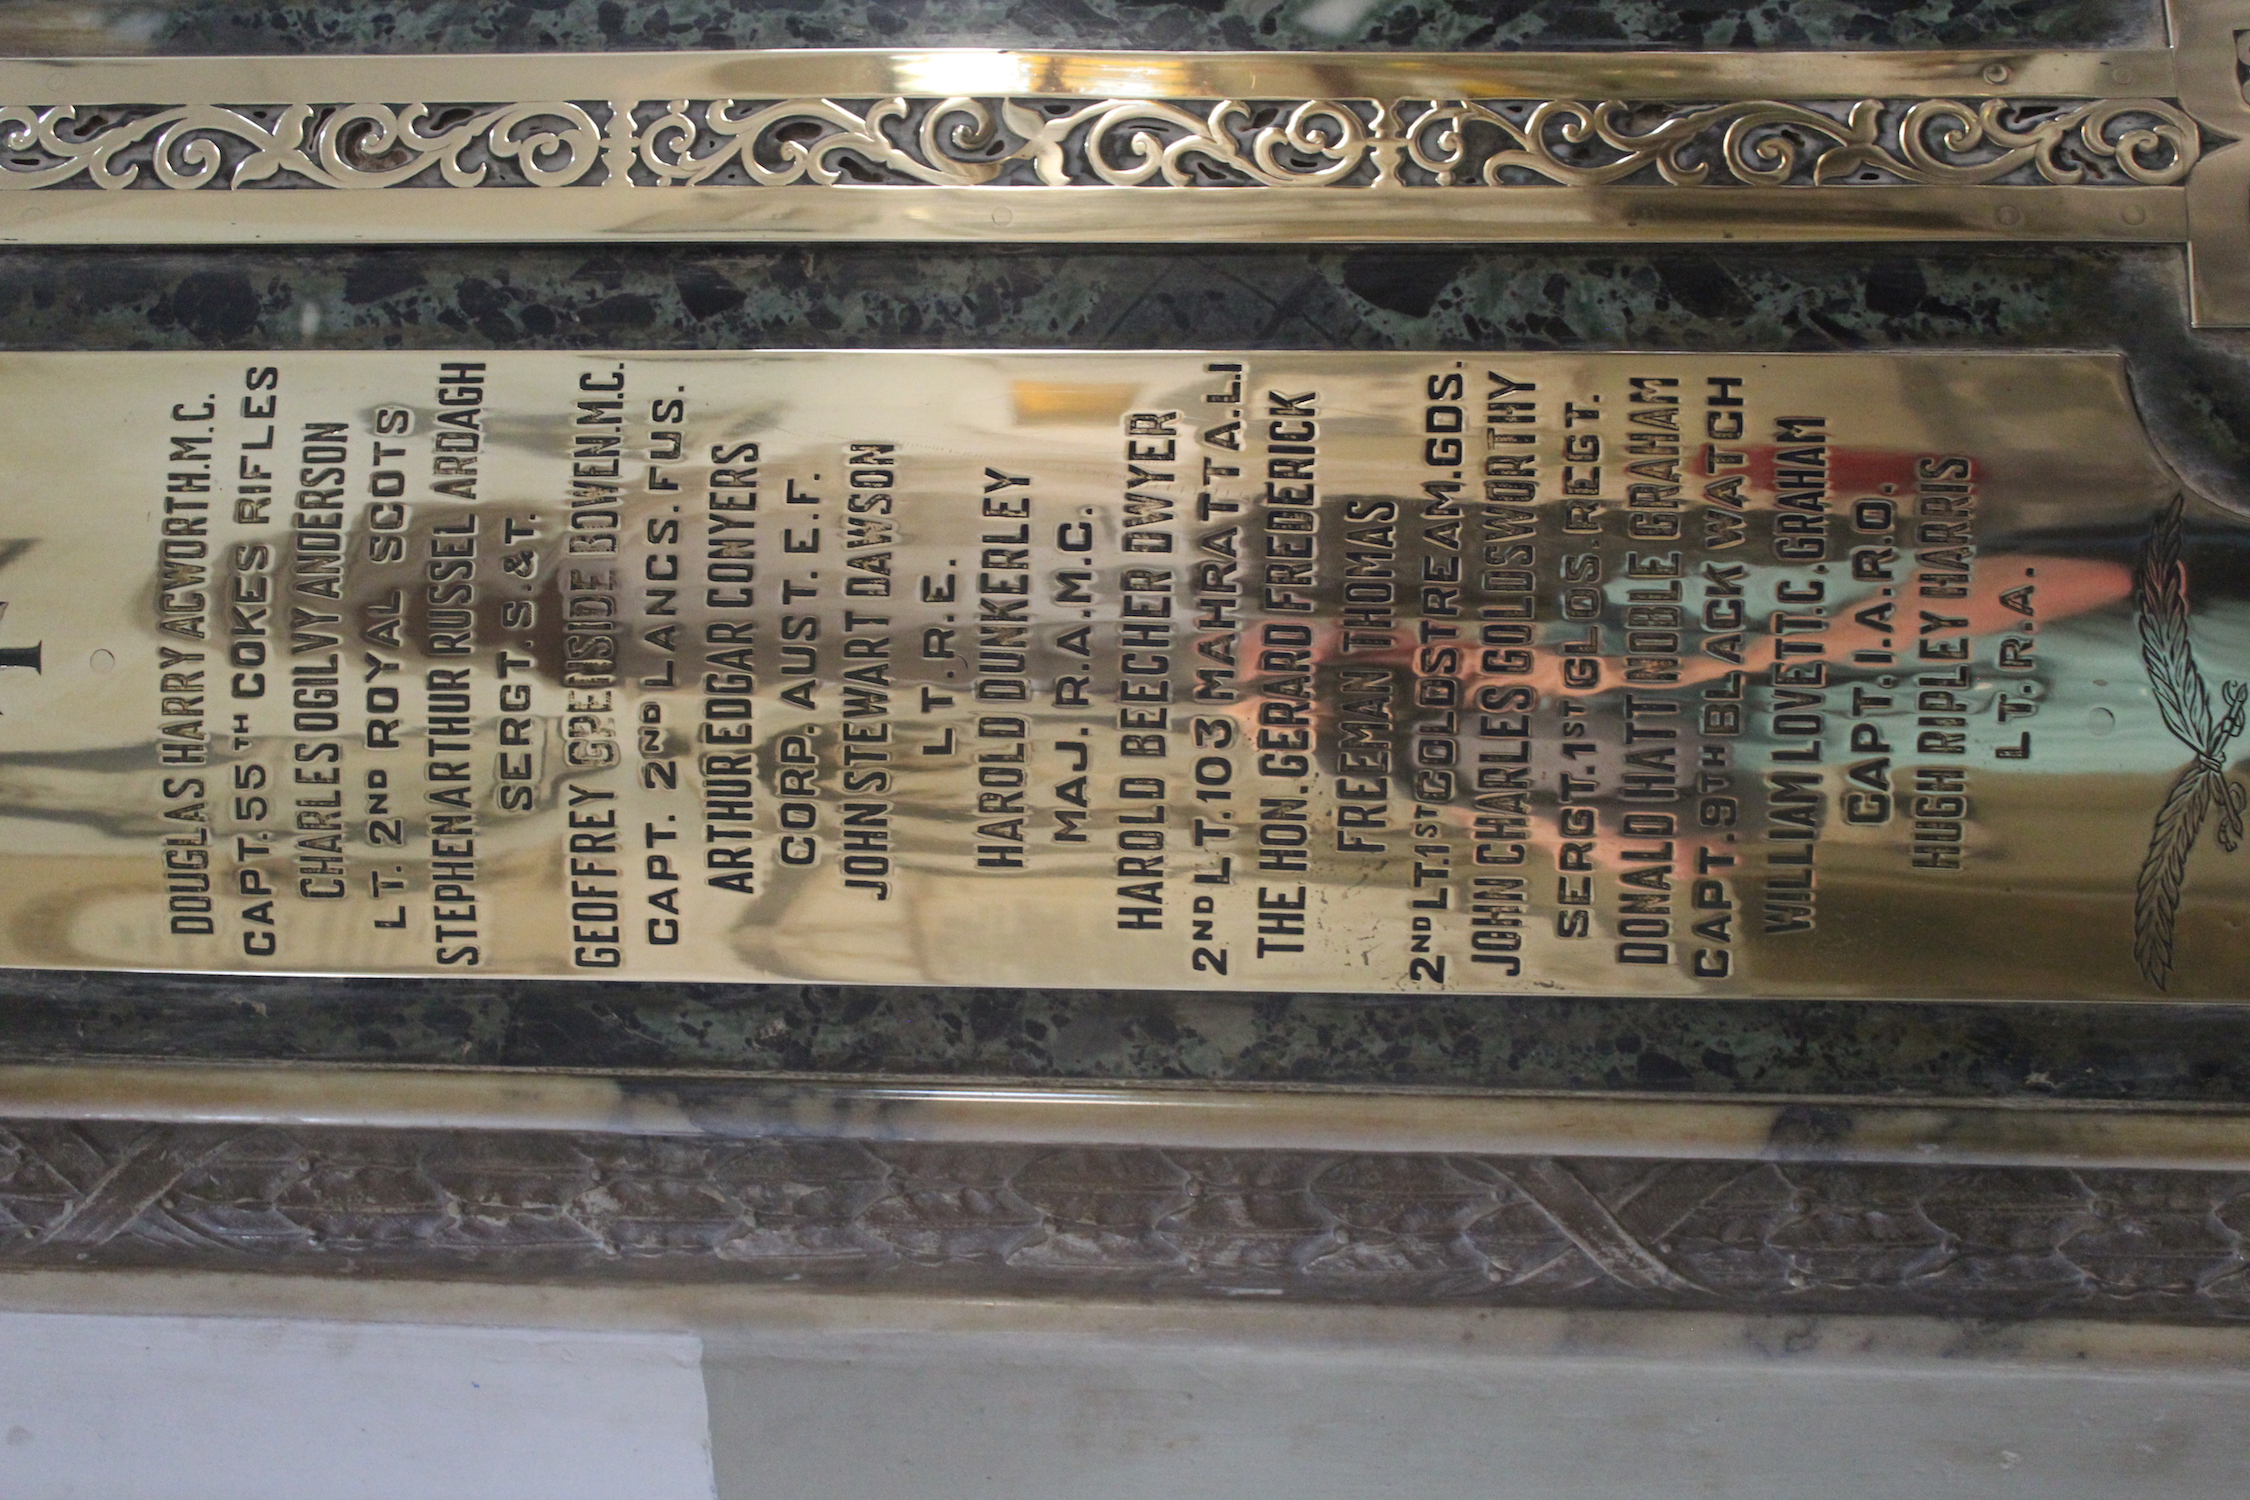 DOUGLAS HARRY ACWORTH.M.C.
CAPT. 55TH COKES RIFLES
CHARLES OGILVY ANDERSON
LT. 2ND ROYAL SCOTS
STEPHEN ARTHUR RUSSEL ARDAGH
SERGT. S.&T.
GEOFFREY GRENSIDE BOWEN.M.C.
CAPT. 2ND LANCS. FUS.
ARTHUR EDGAR CONYERS
CORP. AUST. E.F.
JOHN STEWART DAWSON
LT. R.E.
HAROLD DUNKERLEY
MAJ. R.A.M.C.
HAROLD BEECHER DWYER
2ND LT. 103 MAHRATTA.L.I
THE HON. GERARD FREDERICK
FREEMAN THOMAS
2ND LT. 1ST COLDSTREAM.GDS.
JOHN CHARLES GOLDSWORTHY
SERGT. 1ST GLOS. REGT.
DONALD HATT NOBLE GRAHAM
CAPT. 9TH BLACK WATCH
WILLIAM LOVETT.C.GRAHAM
CAPT. I.A.R.O.
HUGH RIPLEY HARRIS
LT. R.A.